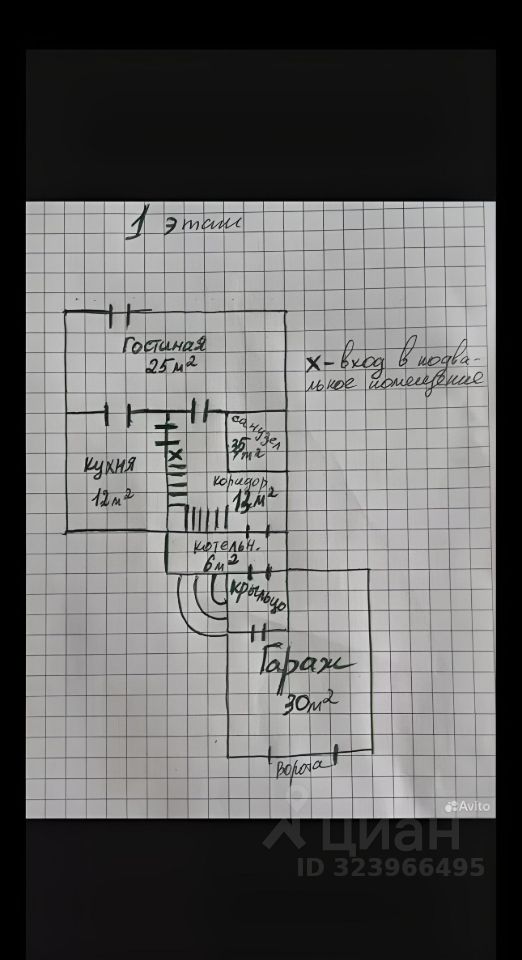 1 этаж
Гостиная
25 м²
X - вход в подва-
льное помещение
санузел
м²
кухня
12 м²
коридор
м²
котельн.
6 м²
крыльцо
Гараж
30 м²
ворота
Avito
циан
ID 323966495